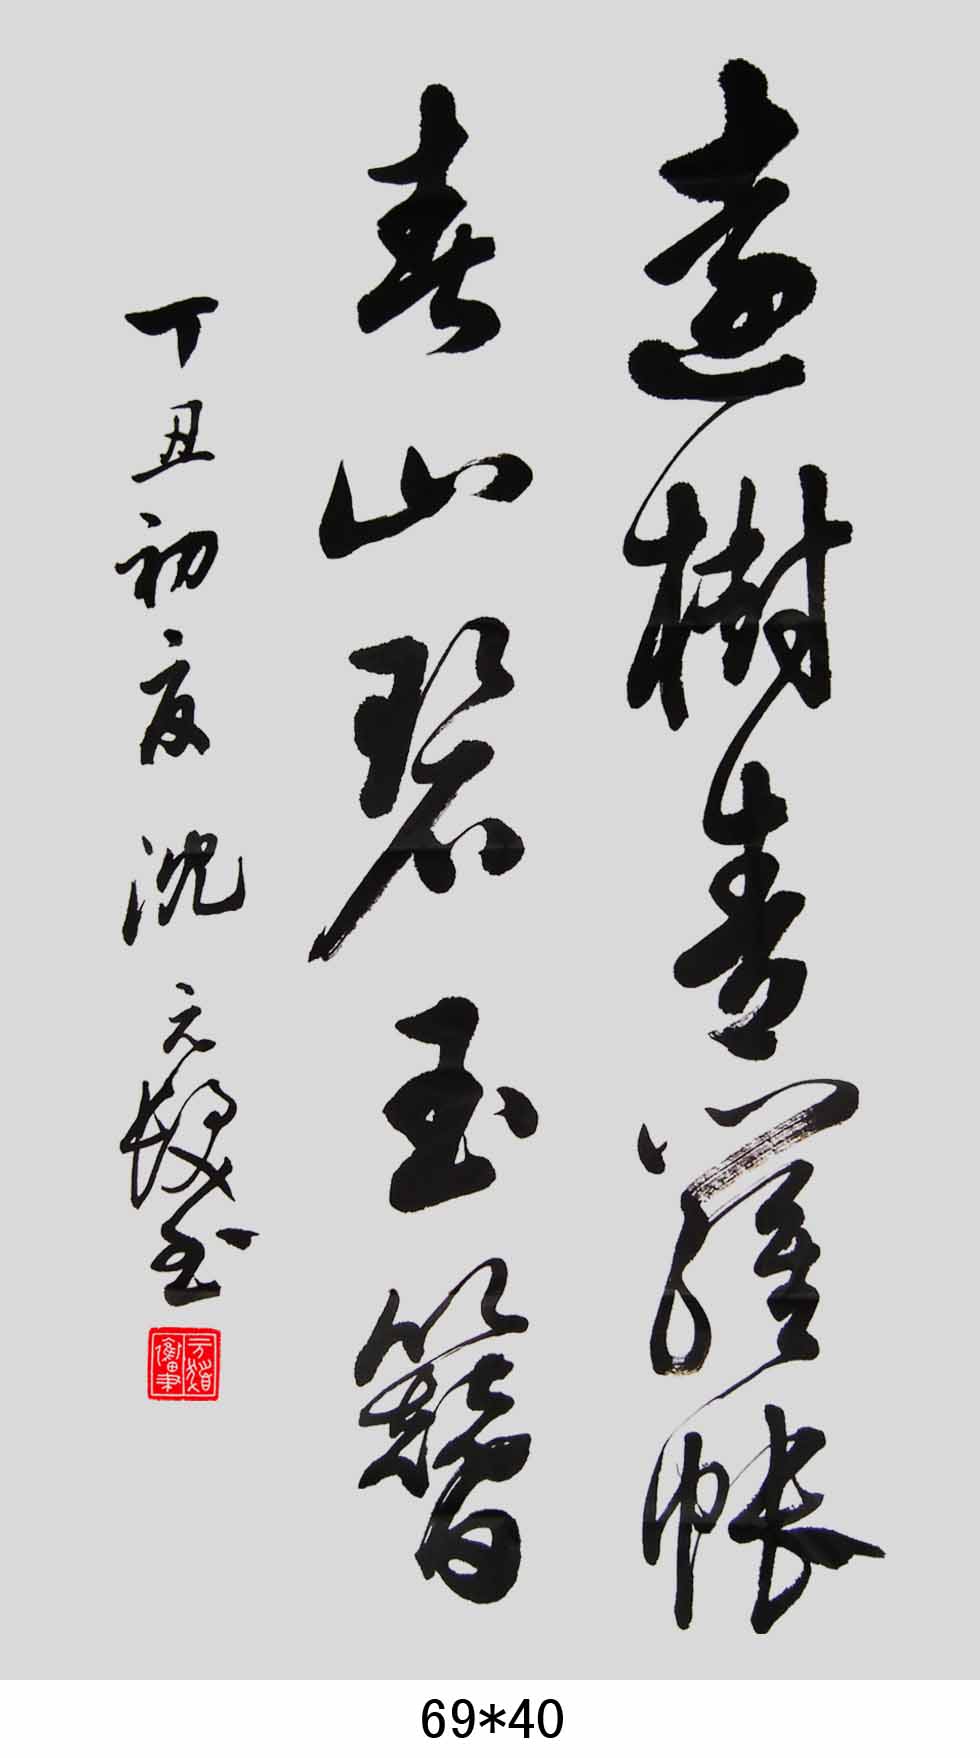 遠樹青羅帳
春山碧玉簪
丁丑初夏 沈元
69*40